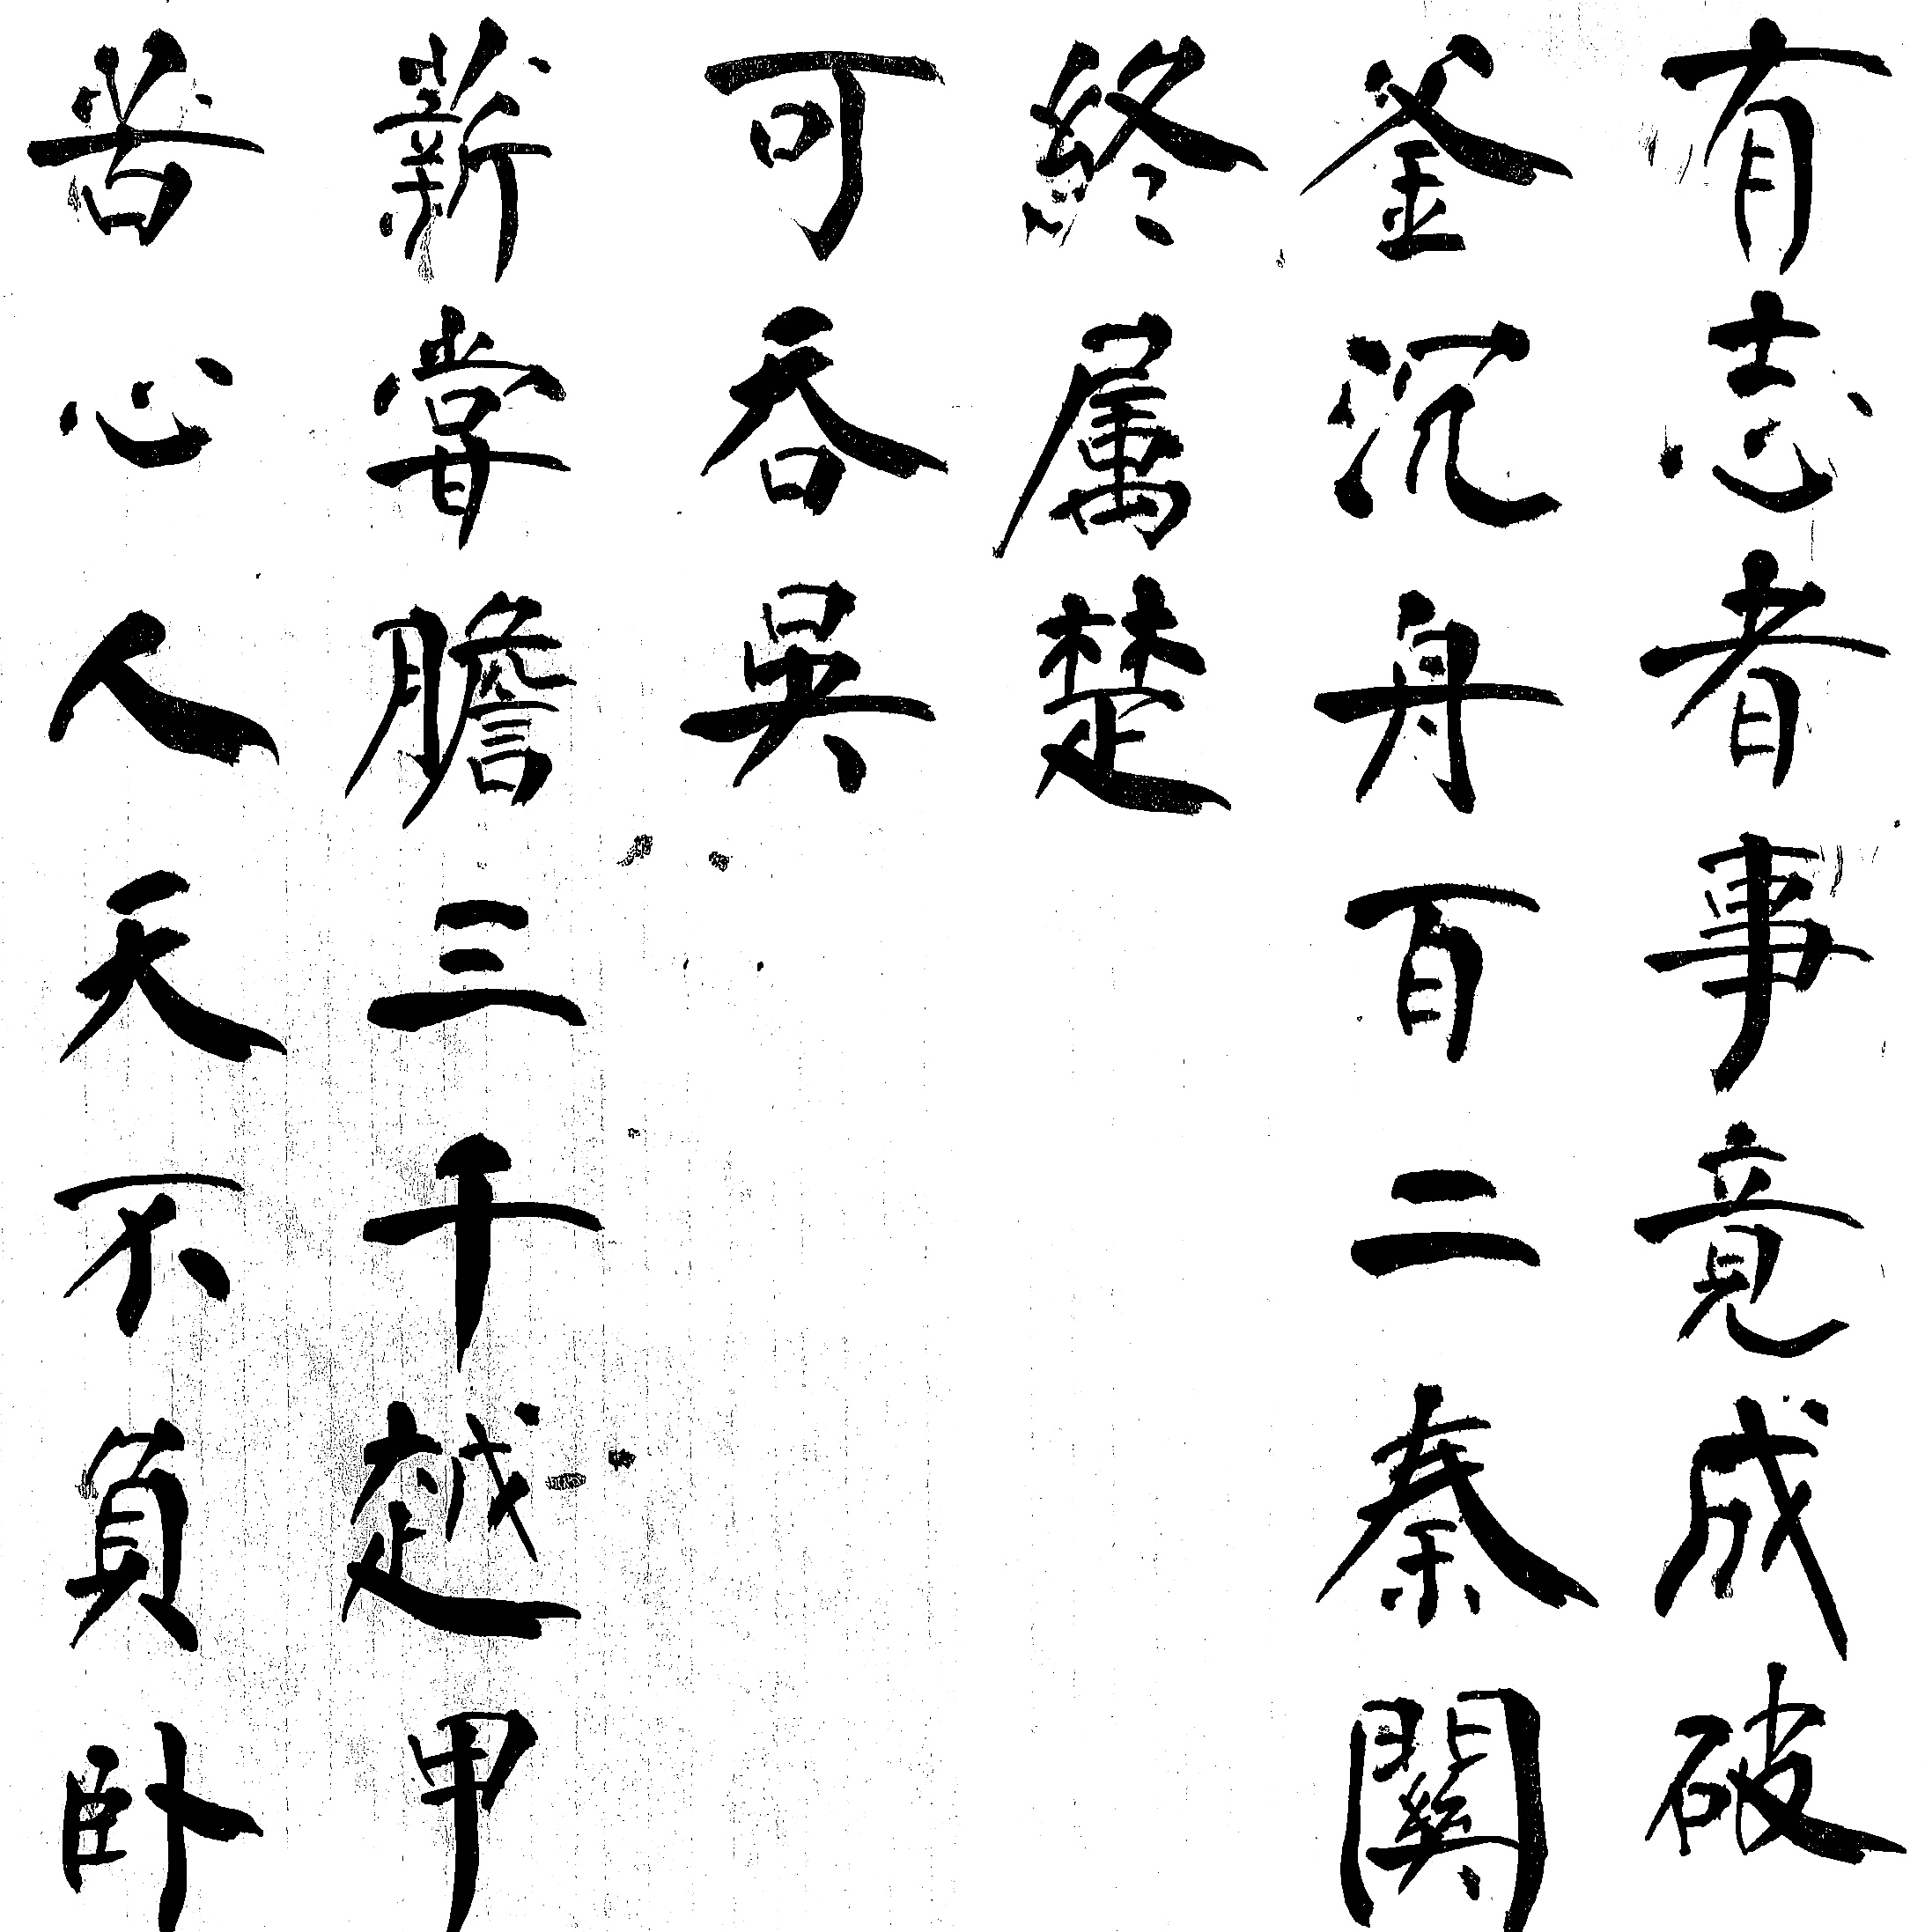 有志者事竟成破
釜沉舟百二秦關
終属楚
苦心人天不負卧
薪甞膽三千越甲
可吞吳